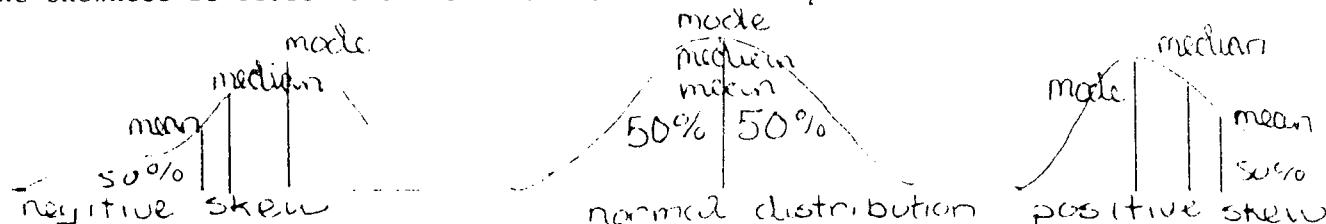 mode
median
mean
50%
negitive skew
mode
median
mean
50% 50%
normal distribution
median
mode
mean
50%
positive skew